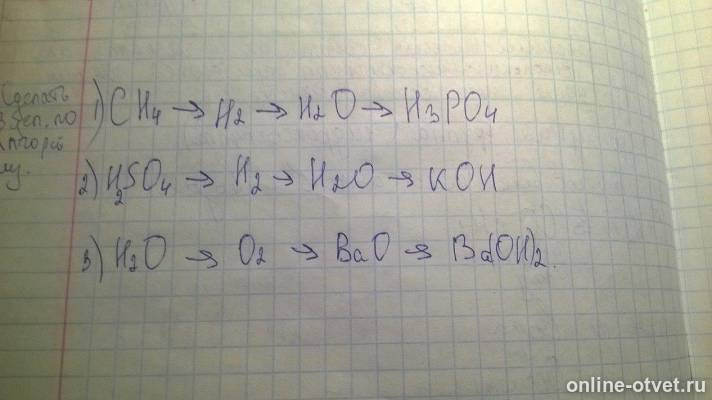 Сделать
1) CH4 → H2 → H2O → H3PO4
2) H2SO4 → H2 → H2O → KOH
3) H2O → O2 → BaO → Ba(OH)2.
online-otvet.ru